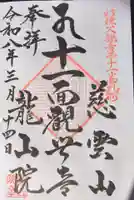 慈雲山
十一面観世音
奉拝
龍山院
令和八年三月十四日